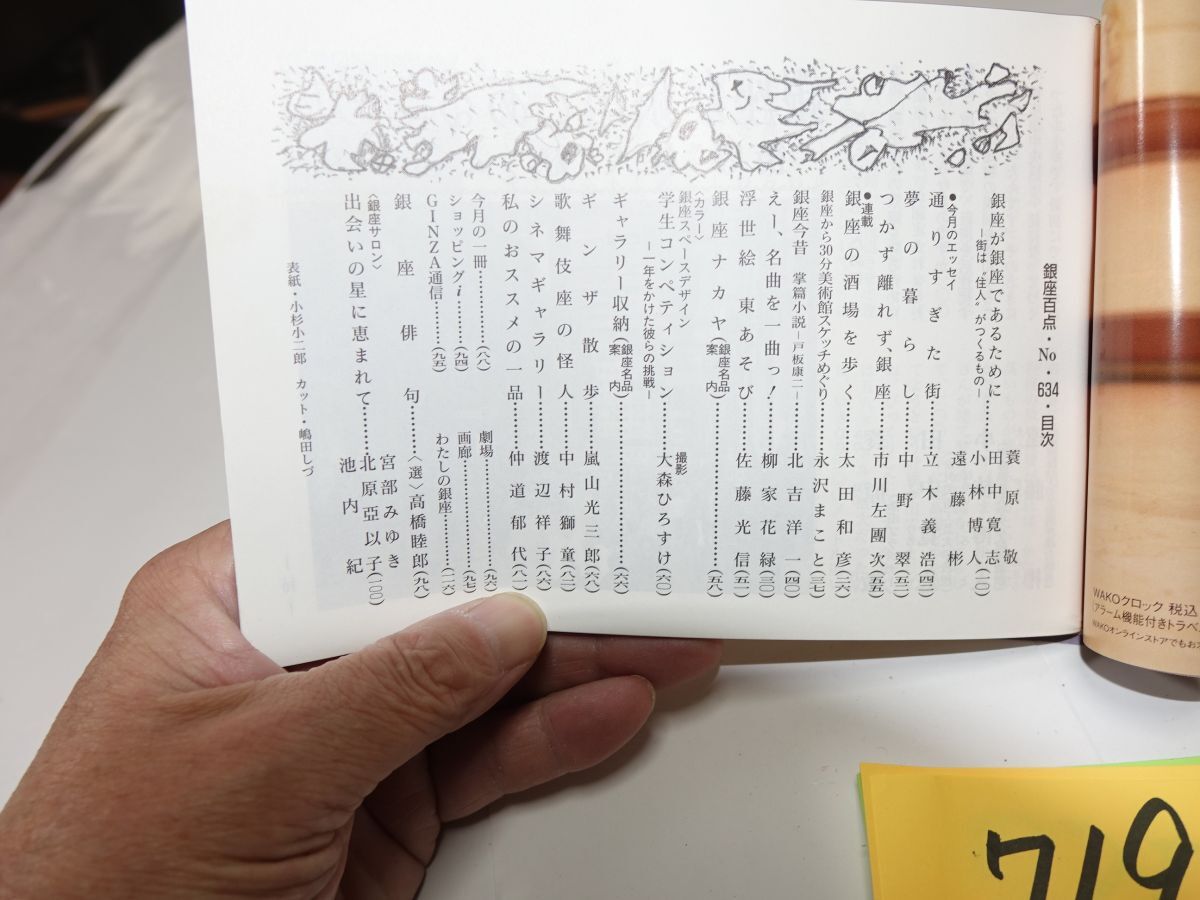 銀座百点・No・634・目次
銀座が銀座であるために
―街は“住人”がつくるもの―
蓑原敬
田中寛志
小林博人
遠藤彬(一〇)
●今月のエッセイ
通りすぎた街………立木義浩(四二)
夢の暮らし………中野翠(五二)
つかず離れず、銀座………市川左團次(五五)
●連載
銀座の酒場を歩く………太田和彦(二六)
銀座から30分美術館スケッチめぐり………永沢まこと(三七)
銀座今昔 掌篇小説―戸板康二―………北吉洋一(四〇)
えー、名曲を一曲っ!………柳家花緑(三〇)
浮世絵東あそび………佐藤光信(五一)
銀座ナカヤ(銀座名品案内)………(五八)
〈カラー〉
銀座スペースデザイン
学生コンペティション………撮影 大森ひろすけ(六〇)
―一年をかけた彼らの挑戦―
ギャラリー収納(銀座名品案内)………(六六)
ギンザ散歩………嵐山光三郎(六八)
歌舞伎座の怪人………中村獅童(八二)
シネマギャラリー………渡辺祥子(八六)
私のおススメの一品………仲道郁代(八一)
今月の一冊………(八八)
劇場………(九六)
ショッピングi………(九四)
画廊………(九七)
GINZA通信………(九五)
わたしの銀座………(一一六)
銀座俳句………〈選〉高橋睦郎(九八)
〈銀座サロン〉
出会いの星に恵まれて………
宮部みゆき
北原亞以子(一〇〇)
池内紀
表紙・小杉小二郎 カット・嶋田しづ
WAKOクロック 税込
(アラーム機能付きトラベ
WAKOオンラインストアでもお
719